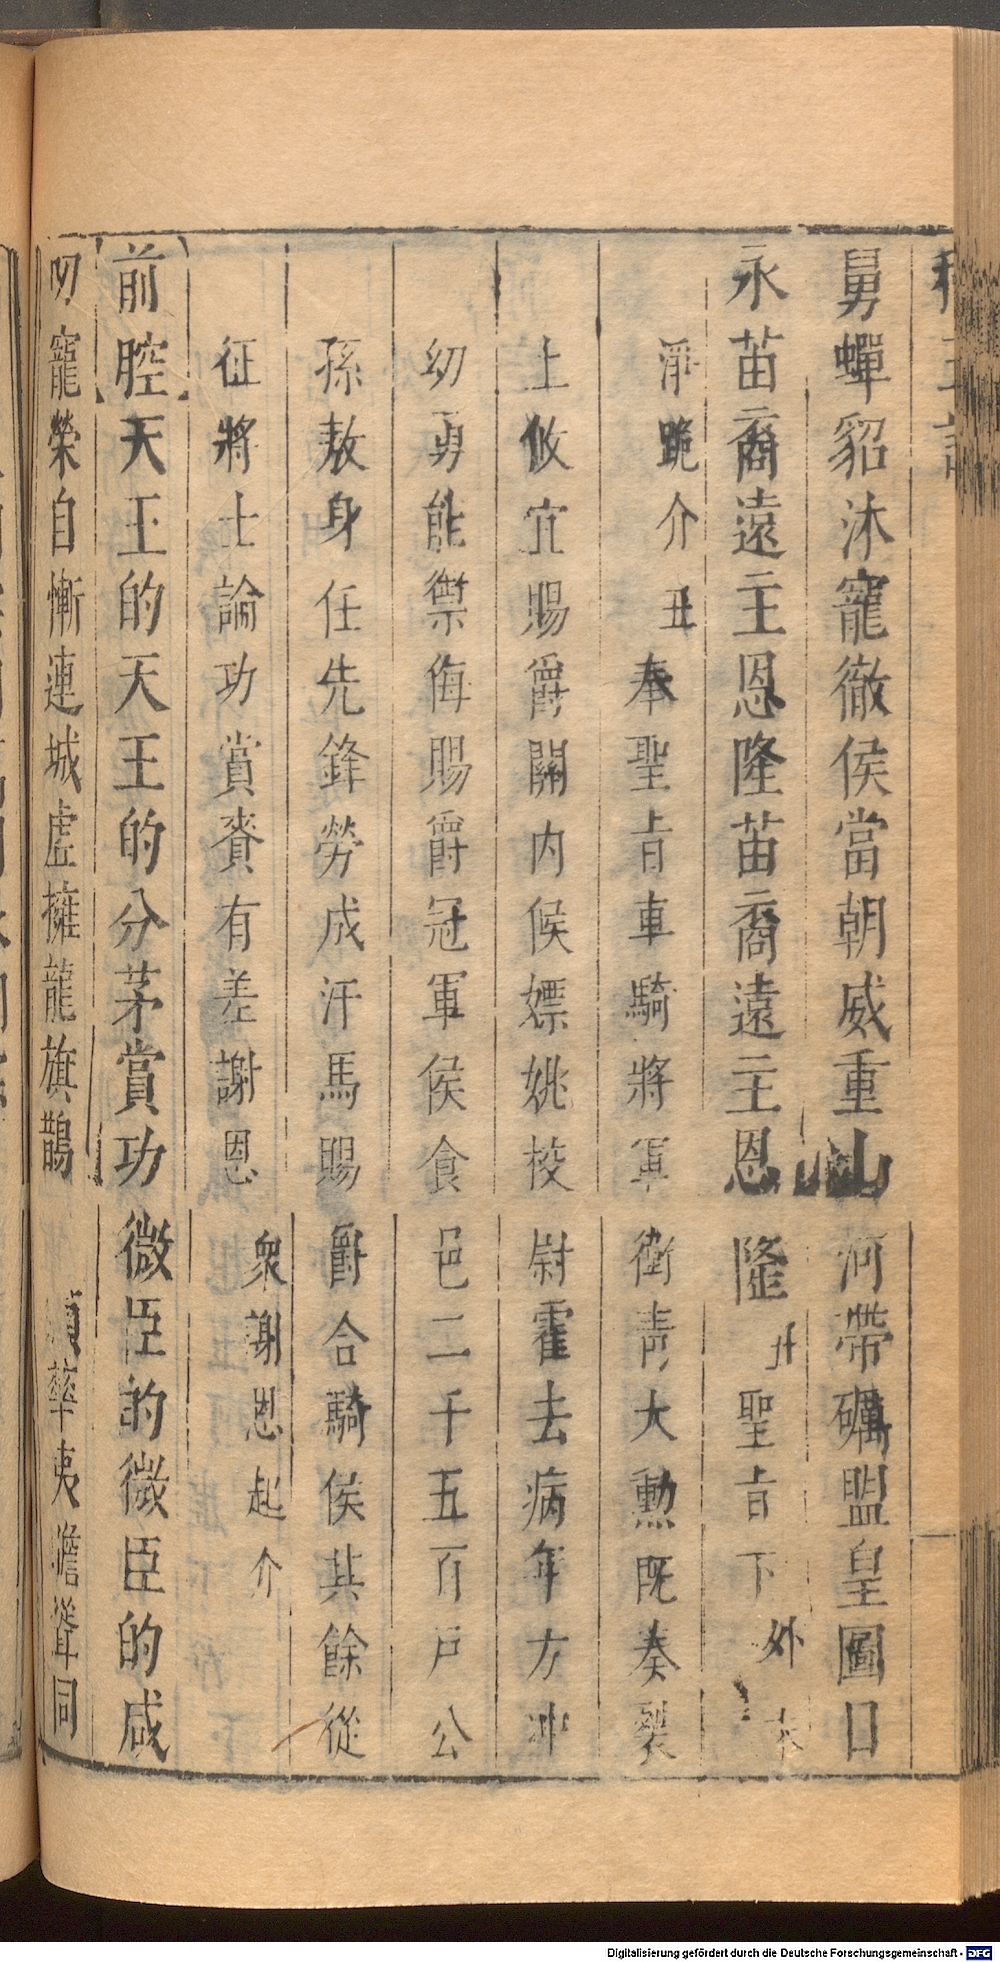 舅蟬貂沐寵徹侯當朝威重山河帶礪盟皇圖日
永苗裔遠主恩隆苗裔遠主恩隆 聖旨下 外
淨跪介 丑奉聖旨車騎將軍衛青大勲既奏裂
土攸宜賜爵關内侯嫖姚校尉霍去病年方冲
幼勇能禦侮賜爵冠軍侯食邑二千五百戸公
孫敖身任先鋒勞成汗馬賜爵合騎侯其餘從
征將士論功賞賚有差謝恩 衆謝恩起介
前腔 天王的天王的分茅賞功微臣的微臣的咸
叨寵榮自慚連城虛擁龍旗鵲 華夷瞻聳同
Digitalisierung gefördert durch die Deutsche Forschungsgemeinschaft - DFG